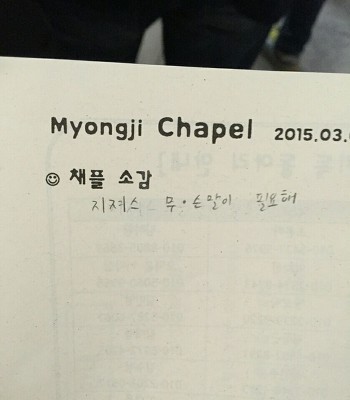 Myongji Chapel 2015.03.
☺ 채플 소감
지져스 무·슨말이 필요해